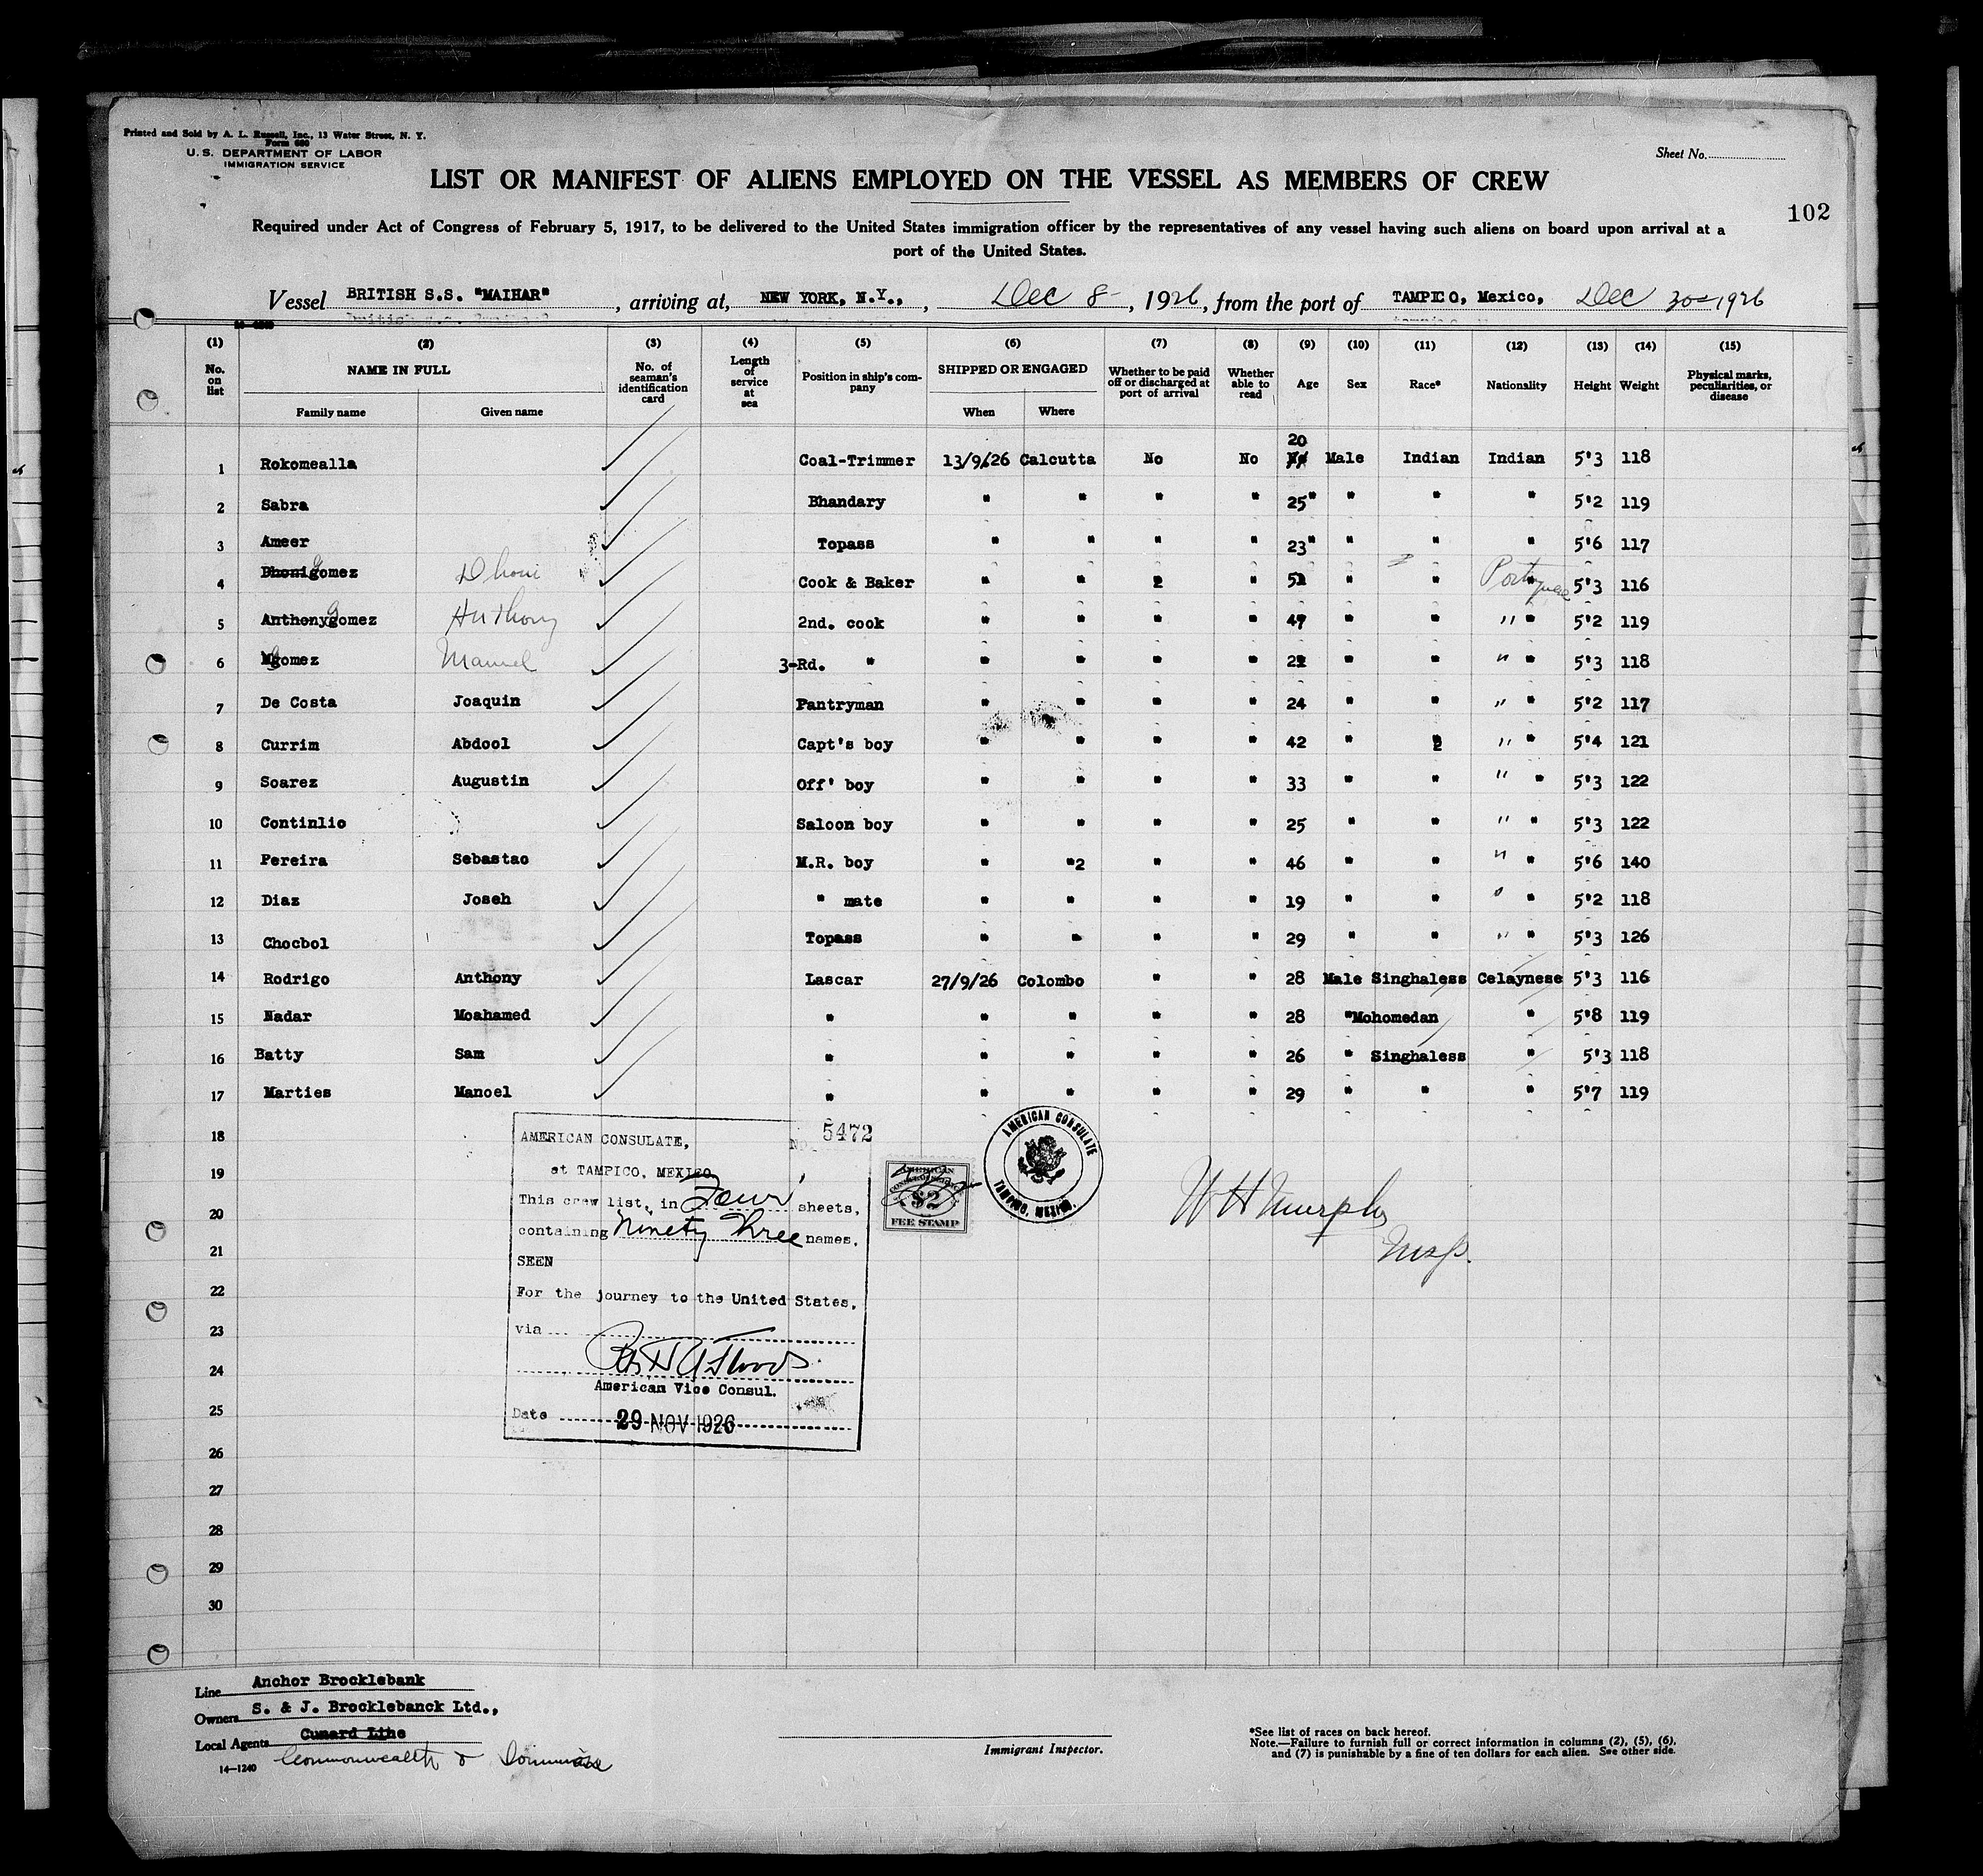 Printed and Sold by A. L. Russell, Inc., 13 Water Street, N. Y.
Form 680
U. S. DEPARTMENT OF LABOR
IMMIGRATION SERVICE
Sheet No.
LIST OR MANIFEST OF ALIENS EMPLOYED ON THE VESSEL AS MEMBERS OF CREW
102
Required under Act of Congress of February 5, 1917, to be delivered to the United States immigration officer by the representatives of any vessel having such aliens on board upon arrival at a
port of the United States.
Vessel BRITISH S.S. "MAIHAR", arriving at, NEW YORK, N.Y., , Dec 8, 1926, from the port of TAMPICO, Mexico, Dec 30 1926
(1) (2) (3) (4) (5) (6) (7) (8) (9) (10) (11) (12) (13) (14) (15)
No. on list NAME IN FULL Family name Given name No. of seaman's identification card Length of service at sea Position in ship's company SHIPPED OR ENGAGED When Where Whether to be paid off or discharged at port of arrival Whether able to read Age Sex Race* Nationality Height Weight Physical marks, peculiarities, or disease
1 Rokomealla Coal-Trimmer 13/9/26 Calcutta No No 20 Male Indian Indian 5'3 118
2 Sabra Bhandary " " " " 25" " " " 5'2 119
3 Ameer Topass " " " " 23" " " " 5'6 117
4 Dhonigomez Dhoni Cook & Baker " " 2 " 52 " " Portuguese 5'3 116
5 Anthonygomez Anthony 2nd. cook " " " " 47 " " " " 5'2 119
6 Mgomez Manuel 3-Rd. " " " " " 22 " " " " 5'3 118
7 De Costa Joaquin Pantryman " " " " 24 " " " " 5'2 117
8 Currim Abdool Capt's boy " " " " 42 " " " " 5'4 121
9 Soarez Augustin Off' boy " " " " 33 " " " " 5'3 122
10 Continlio Saloon boy " " " " 25 " " " " 5'3 122
11 Pereira Sebastao M.R. boy " "2 " " 46 " " " " 5'6 140
12 Diaz Joseh " mate " " " " 19 " " " " 5'2 118
13 Chocbol Topass " " " " 29 " " " " 5'3 126
14 Rodrigo Anthony Lascar 27/9/26 Colombo " " 28 Male Singhaless Celaynese 5'3 116
15 Nadar Moahamed " " " " " 28 "Mohomedan " 5'8 119
16 Batty Sam " " " " " 26 " Singhaless " 5'3 118
17 Marties Manoel " " " " " 29 " " " 5'7 119
18
19
20
21
22
23
24
25
26
27
28
29
30
AMERICAN CONSULATE, No. 5472
at TAMPICO, MEXICO
This crew list, in Four sheets,
containing Ninety Three names,
SEEN
For the journey to the United States,
via
American Vice Consul.
Date 29 NOV 1926
AMERICAN
$2
FEE STAMP
AMERICAN CONSULATE
TAMPICO, MEXICO.
W H Murphy
Line Anchor Brocklebank
Owners S. & J. Brocklebanck Ltd.,
Local Agents Cunard Line
Commonwealth & Dominion
14—1240
Immigrant Inspector.
*See list of races on back hereof.
Note.—Failure to furnish full or correct information in columns (2), (5), (6),
and (7) is punishable by a fine of ten dollars for each alien. See other side.